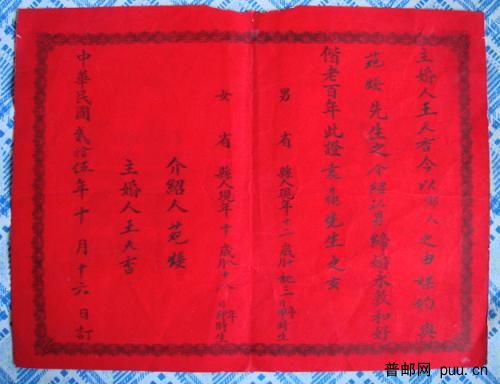 主婚人王天香今以鄙人之由媒妁與
苑矮先生之介紹江男締婚永敦和好
偕老百年此證袁 先生之女
男 省 縣人現年十二歲 月初三日 時生
女 省 縣人現年十歲八月十八日卯時年生
介紹人苑矮
主婚人王天香
中華民國貳拾伍年十月十六日訂
普邮网 puu.cn